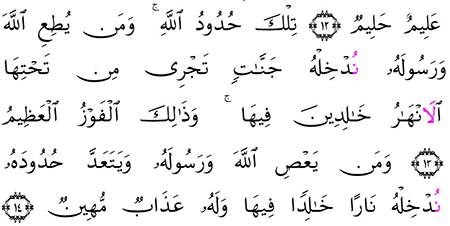 عَلِيمٌ حَلِيمٌ ۝١٢ تِلْكَ حُدُودُ اُللَّهِ ۚ وَمَن يُطِعِ اِللَّهَ
وَرَسُولَهُۥ نُدْخِلْهُ جَنَّٰتٍ تَجْرِى مِن تَحْتِهَا
اَلَانْهَٰرُ خَٰلِدِينَ فِيهَا ۚ وَذَٰلِكَ اَلْفَوْزُ اُلْعَظِيمُ
۝١٣ وَمَن يَعْصِ اِللَّهَ وَرَسُولَهُۥ وَيَتَعَدَّ حُدُودَهُۥ
نُدْخِلْهُ نَارًا خَٰلِدًا فِيهَا وَلَهُۥ عَذَابٌ مُّهِينٌ ۝١٤